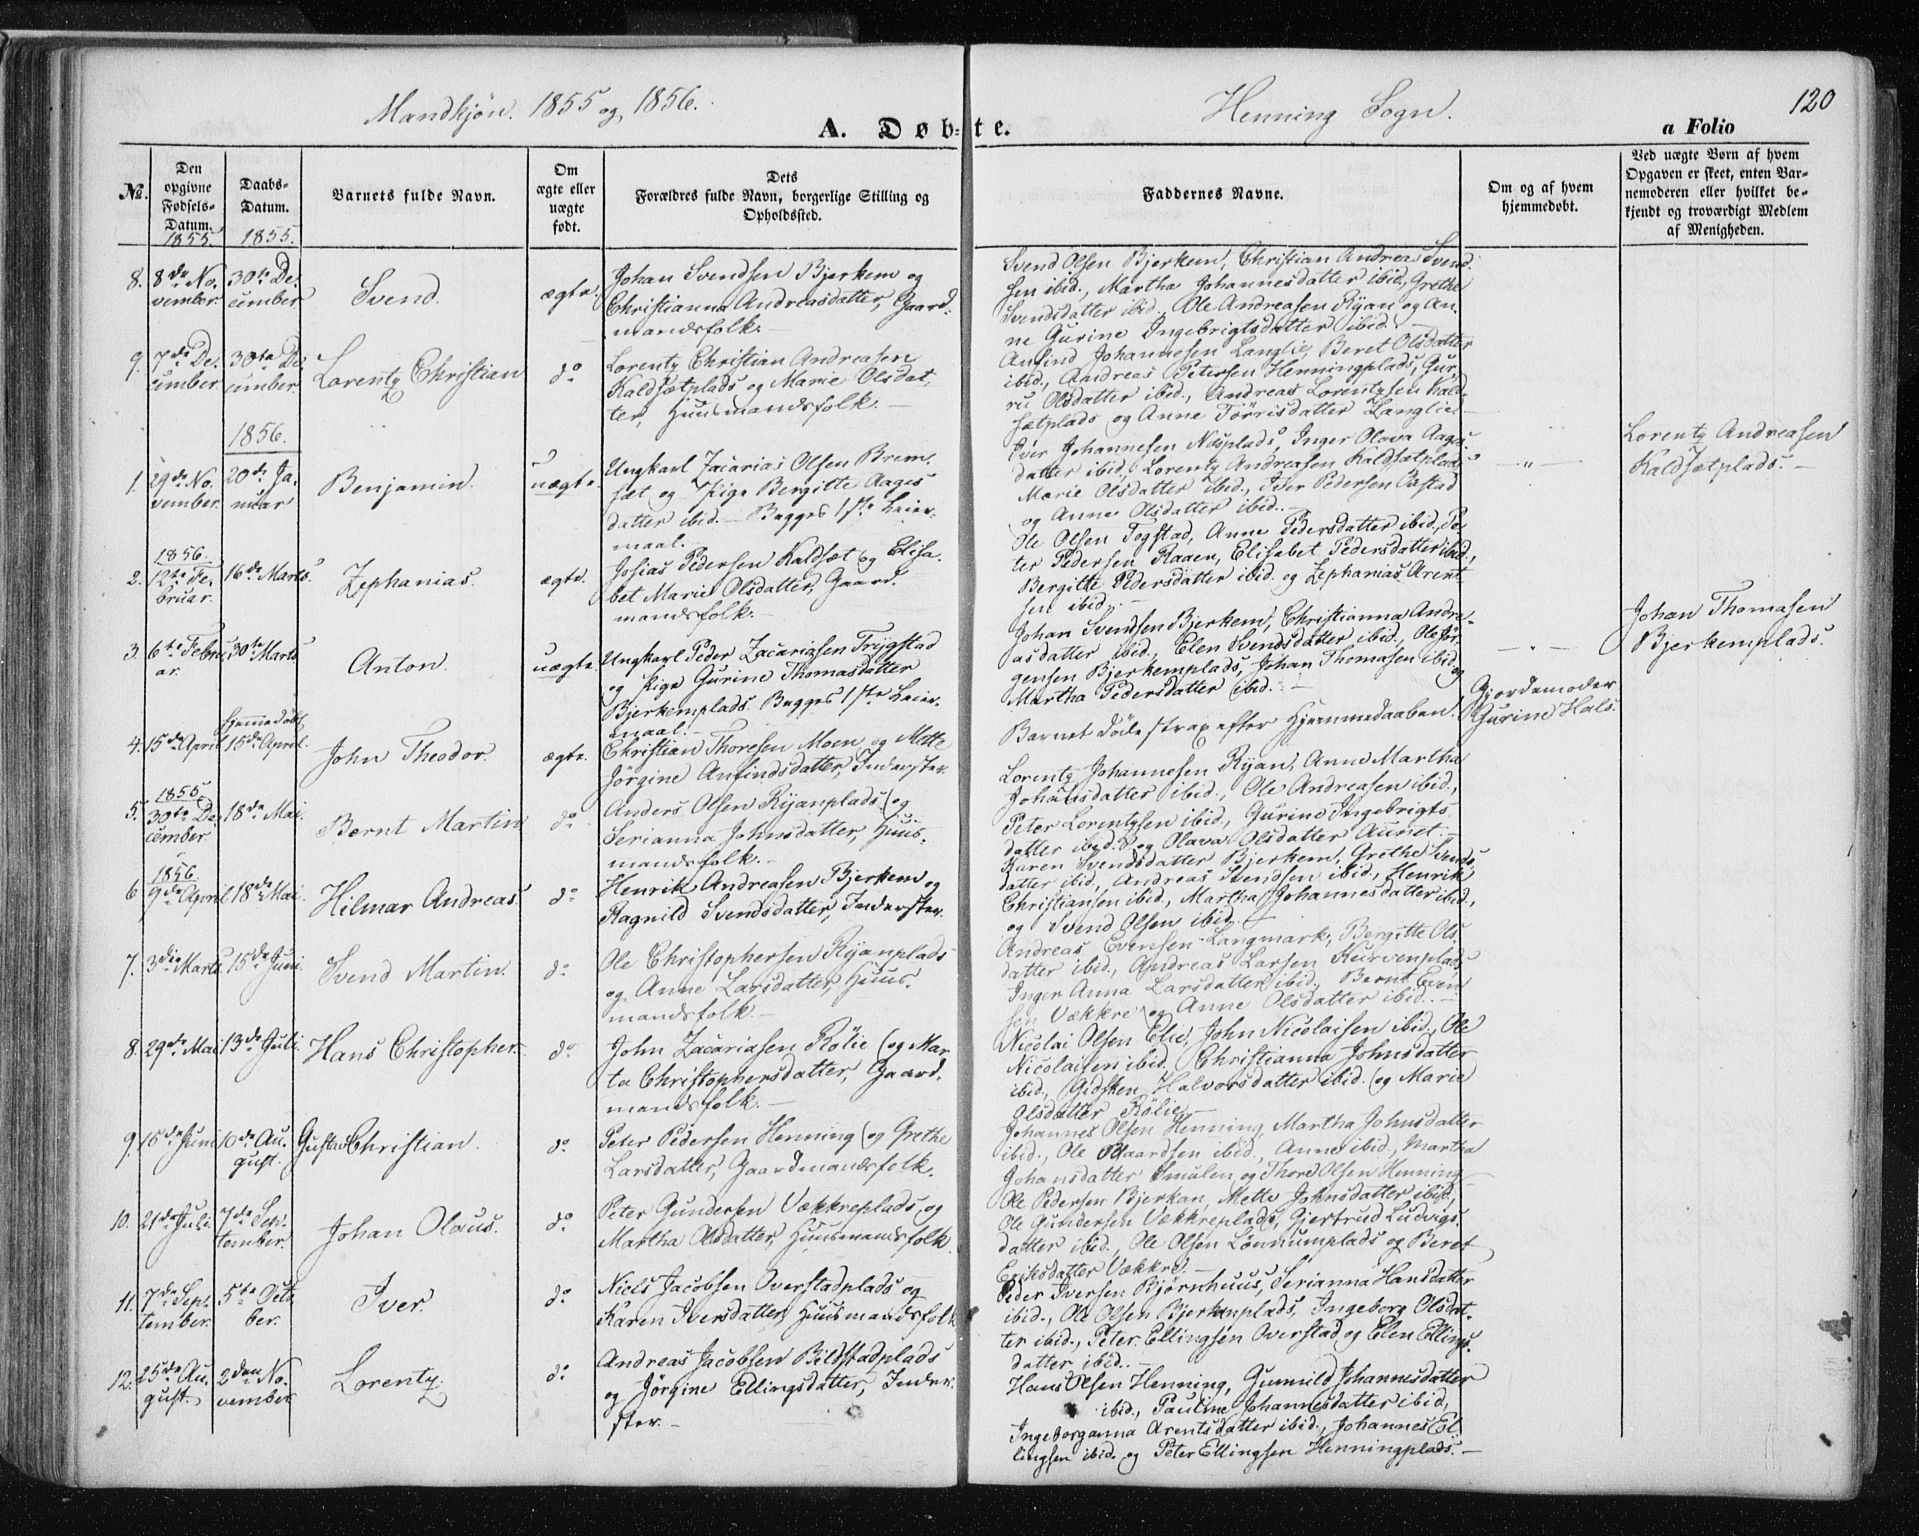 Mandkjøn. 1855 og 1856.
Henning Sogn.
120
A. Døbte.
a Folio
No.
Den opgivne Fødsels-Datum.
Daabs-Datum.
Barnets fulde Navn.
Om ægte eller uægte født.
Dets Forældres fulde Navn, borgerlige Stilling og Opholdssted.
Faddernes Navne.
Om og af hvem hjemmedøbt.
Ved uægte Børn af hvem Opgaven er skeet, enten Barnemoderen eller hvilket bekjendt og troværdigt Medlem af Menigheden.
1855.
1855.
8.
8de No-
vember
30te De-
cember
Svend.
ægte.
Johan Svendsen Bjerkem og
Christianna Andreasdatter, Gaard-
mandsfolk.
Svend Olsen Bjerkem, Christian Andreas Svend-
sen ibid., Martha Johannesdatter ibid., Grethe
Svendsdatter ibid., Ole Andreasen Ryan og An-
ne Gurine Ingebrigtsdatter ibid.
9.
7de De-
cember
30te De-
cember.
Lorentz Christian
do
Lorentz Christian Andreasen
Kaldsætplads og Marie Olsdat-
ter, Huusmandsfolk.
Anfind Johannesen Langlie, Beret Olsdatter
ibid., Andreas Petersen Henningplads, Gu-
ru Olsdatter ibid., Andreas Lorentzsen Kald-
sætplads og Anne Tørrisdatter Langlie
1856.
1.
29de No-
vember.
20de Ja-
nuar
Benjamin.
uægte.
Ungkarl Zacarias Olsen Brem-
sæt og Pige Bergitte Aages-
datter ibid. - Begges 1ste Leier-
maal.
Iver Johannesen Næsplads, Inger Olava Aages-
datter ibid., Lorentz Andreasen Kaldsætplads,
Marie Olsdatter ibid., Iver Pedersen
og Anne Olsdatter ibid.
Lorentz Andreasen
Kaldsætplads.
1856.
2.
12te Fe-
bruar.
16de Marts.
Zephanias.
ægte.
Josias Pedersen Kaldsæt og Elisa-
bet Marie Olsdatter, Gaard-
mandsfolk.
Ole Olsen Togstad, Anne Pedersdatter ibid., Pe-
ter Pedersen Raaen, Elisabet Pedersdatter ibid.,
Bergitte Pedersdatter ibid. og Zephanias Arent-
sen ibid.
3.
6te Febru-
ar.
30te Marts
Anton.
uægte.
Ungkarl Peder Zacariasen Trygstad
og Pige Gurine Thomasdatter
Bjerkemplads. Begges 1ste Leier-
maal.
Johan Svendsen Bjerkem, Christianna Andre-
asdatter ibid., Elen Svendsdatter ibid., Ole Jør-
gensen Bjerkemplads, Johan Thomasen ibid. og
Martha Pedersdatter ibid.
Johan Thomasen
Bjerkemplads.
4.
15de April
Hjemmedøbt
15de April.
John Theodor.
ægte.
Christian Thoresen Moen og Mette
Jørgine Anfindsdatter, Inderster.
Barnet døde strax efter Hjemmedaaben.
Gjordemoder
Gurine Hals.
1855.
5.
30te De-
cember
18de Mai.
Bernt Martin
do
Anders Olsen Ryanplads og
Serianna Johnsdatter, Huus-
mandsfolk.
Lorentz Johannesen Ryan, Anne Martha
Johansdatter ibid., Ole Andreasen ibid.,
Peter Lorentzsen ibid., Gurine Ingebrigts-
datter ibid. og Olava Olsdatter Aunet.
1856.
6.
9de April
18de Mai.
Hilmar Andreas.
do
Henrik Andreasen Bjerkem og
Ragnild Svendsdatter, Inderster.
Karen Svendsdatter Bjerkem, Grethe Svends-
datter ibid., Andreas Svendsen ibid., Henrik
Christiansen ibid., Martha Johannesdatter ibid.,
og Svend Olsen ibid.
7.
3die Marts
15de Juni.
Svend Martin.
do
Ole Christophersen Ryanplads
og Anne Larsdatter, Huus-
mandsfolk.
Andreas Evensen Langmark, Bergitte Ols-
datter ibid., Andreas Larsen Kurvenplads,
Inger Anna Larsdatter ibid., Bernt Even-
sen Vækkre og Anne Olsdatter ibid.
8.
29de Mai
13de Juli.
Hans Christopher.
do
John Zacariasen Rølie og Mar-
ta Christophersdatter, Gaard-
mandsfolk.
Nicolai Olsen Elie, John Nicolaisen ibid., Ole
Nicolaisen ibid., Christianna Johnsdatter
ibid., Gidsken Halvorsdatter ibid. og Marie
Olsdatter Rølie.
9.
15de Juni
10de Au-
gust.
Gustav Christian.
do
Peter Pedersen Henning og Grethe
Larsdatter, Gaardmandsfolk.
Johannes Olsen Henning, Martha Johnsdatter
ibid., Ole ibid., Anne ibid., Martha
Johansdatter Smulen og Thore Olsen Henning
10.
21de Juli.
7de Sep-
tember.
Johan Olaus.
do
Peter Gundersen Vækkreplads og
Martha Olsdatter, Huusmandsfolk.
Ole Pedersen Bjerkan, Mette Johnsdatter ibid.,
Ole Gundersen Vækkreplads, Gjertrud Ludvigs-
datter ibid., Ole Olsen Lønnumplads og Beret
Eriksdatter Vækkre.
11.
7de Sep-
tember.
5te Octo-
ber.
Iver.
do
Niels Jacobsen Overstadplads og
Karen Iversdatter, Huusmandsfolk
Peder Iversen Bjørnhuus, Serianna Hansdatter
ibid., Ole Olsen Bjerkanplads, Ingeborg Olsdat-
ter ibid., Peter Ellingsen Overstad og Elen Ellings-
datter ibid.
12.
25de Au-
gust.
2den No-
vember
Lorentz.
do
Andreas Jacobsen Bildstadplads
og Jørgine Ellingsdatter, Inder-
ster.
Hans Olsen Henning, Gunnild Johannesdatter
ibid., Pauline Johannesdatter ibid.,
Ingeborganna Arentsdatter ibid., Johannes El-
lingsen ibid. og Peter Ellingsen Henningplads.